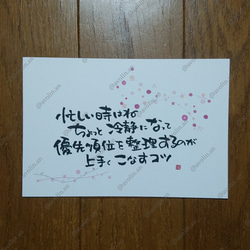 忙しい時はね
ちょっと冷静になって
優先順位を整理するのが
上手くこなすコツ